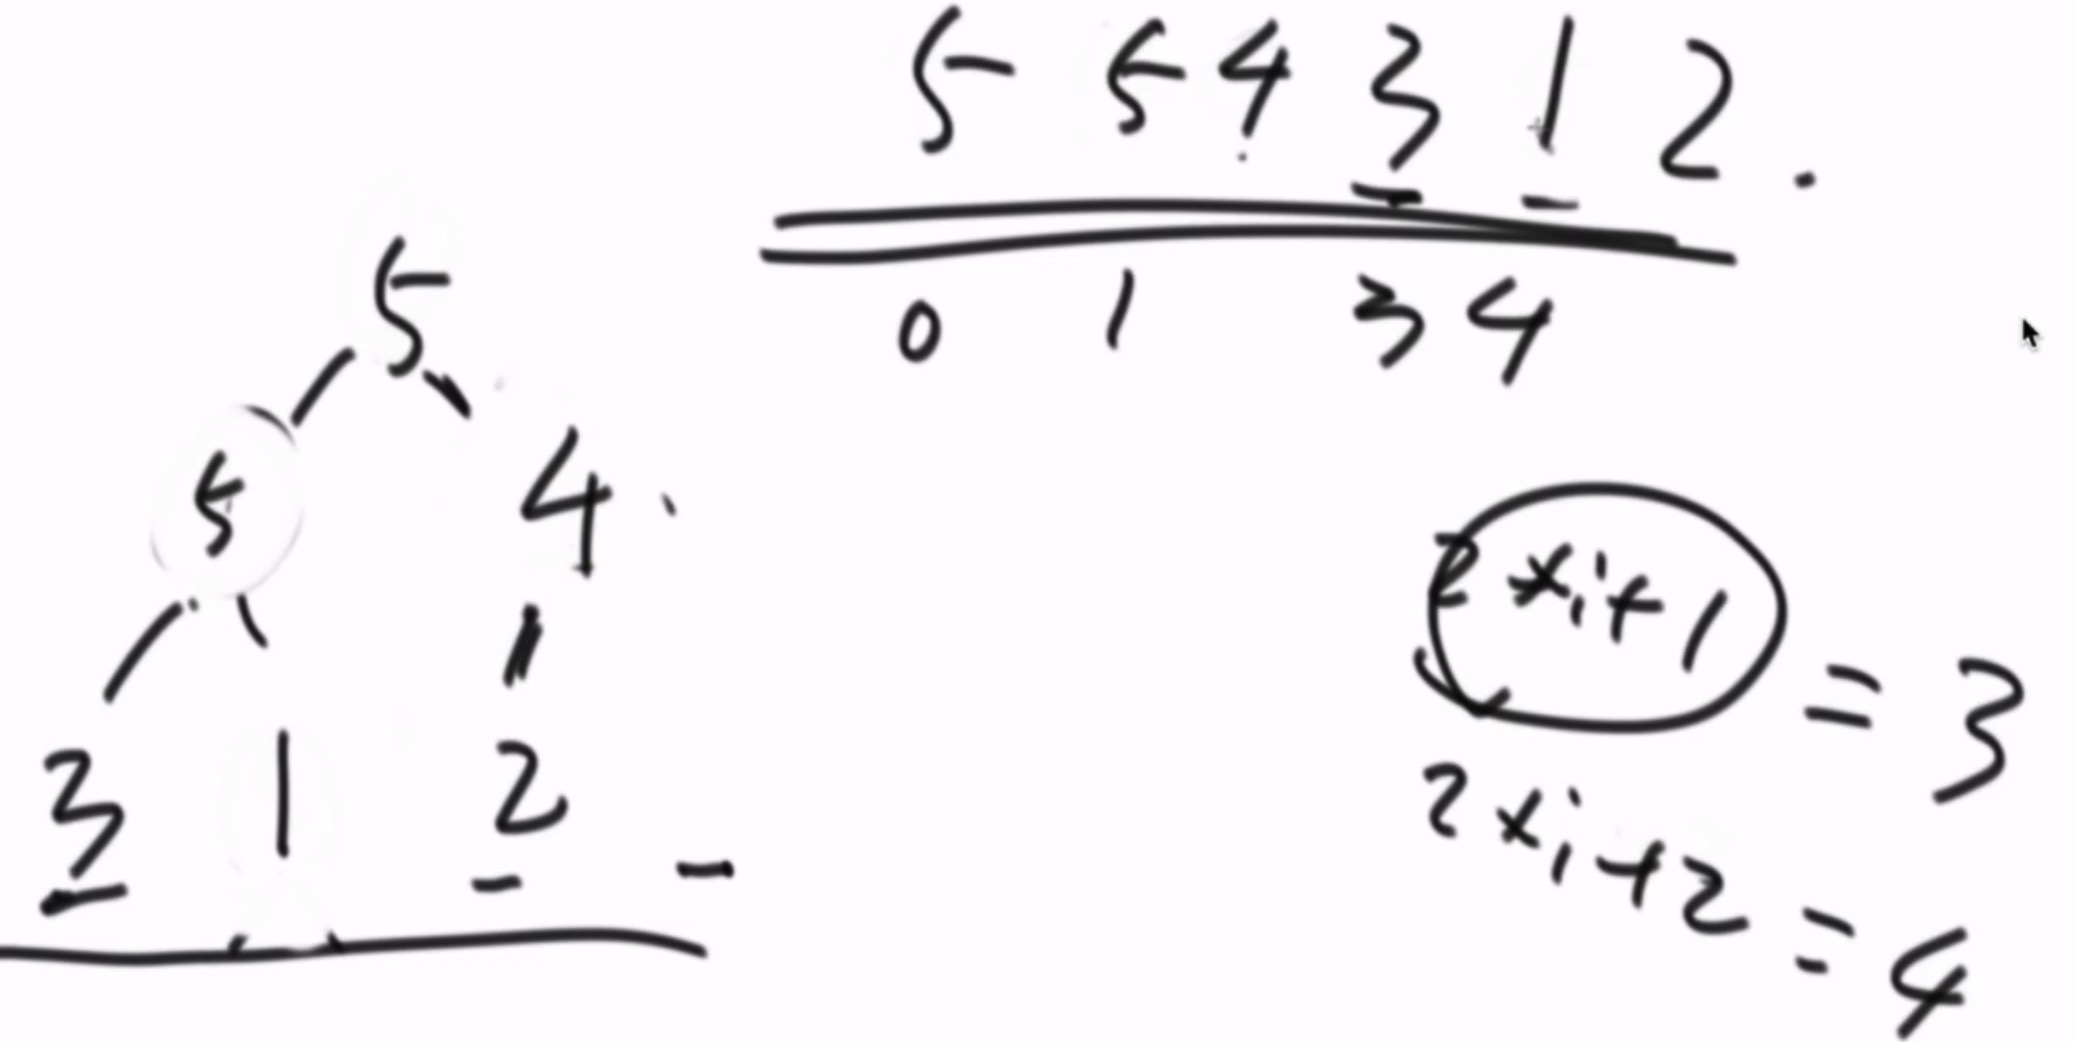 5 5 4 3 1 2 .
0 1 3 4
5
5 4
3 1 2
2 * i + 1 = 3
2 * i + 2 = 4